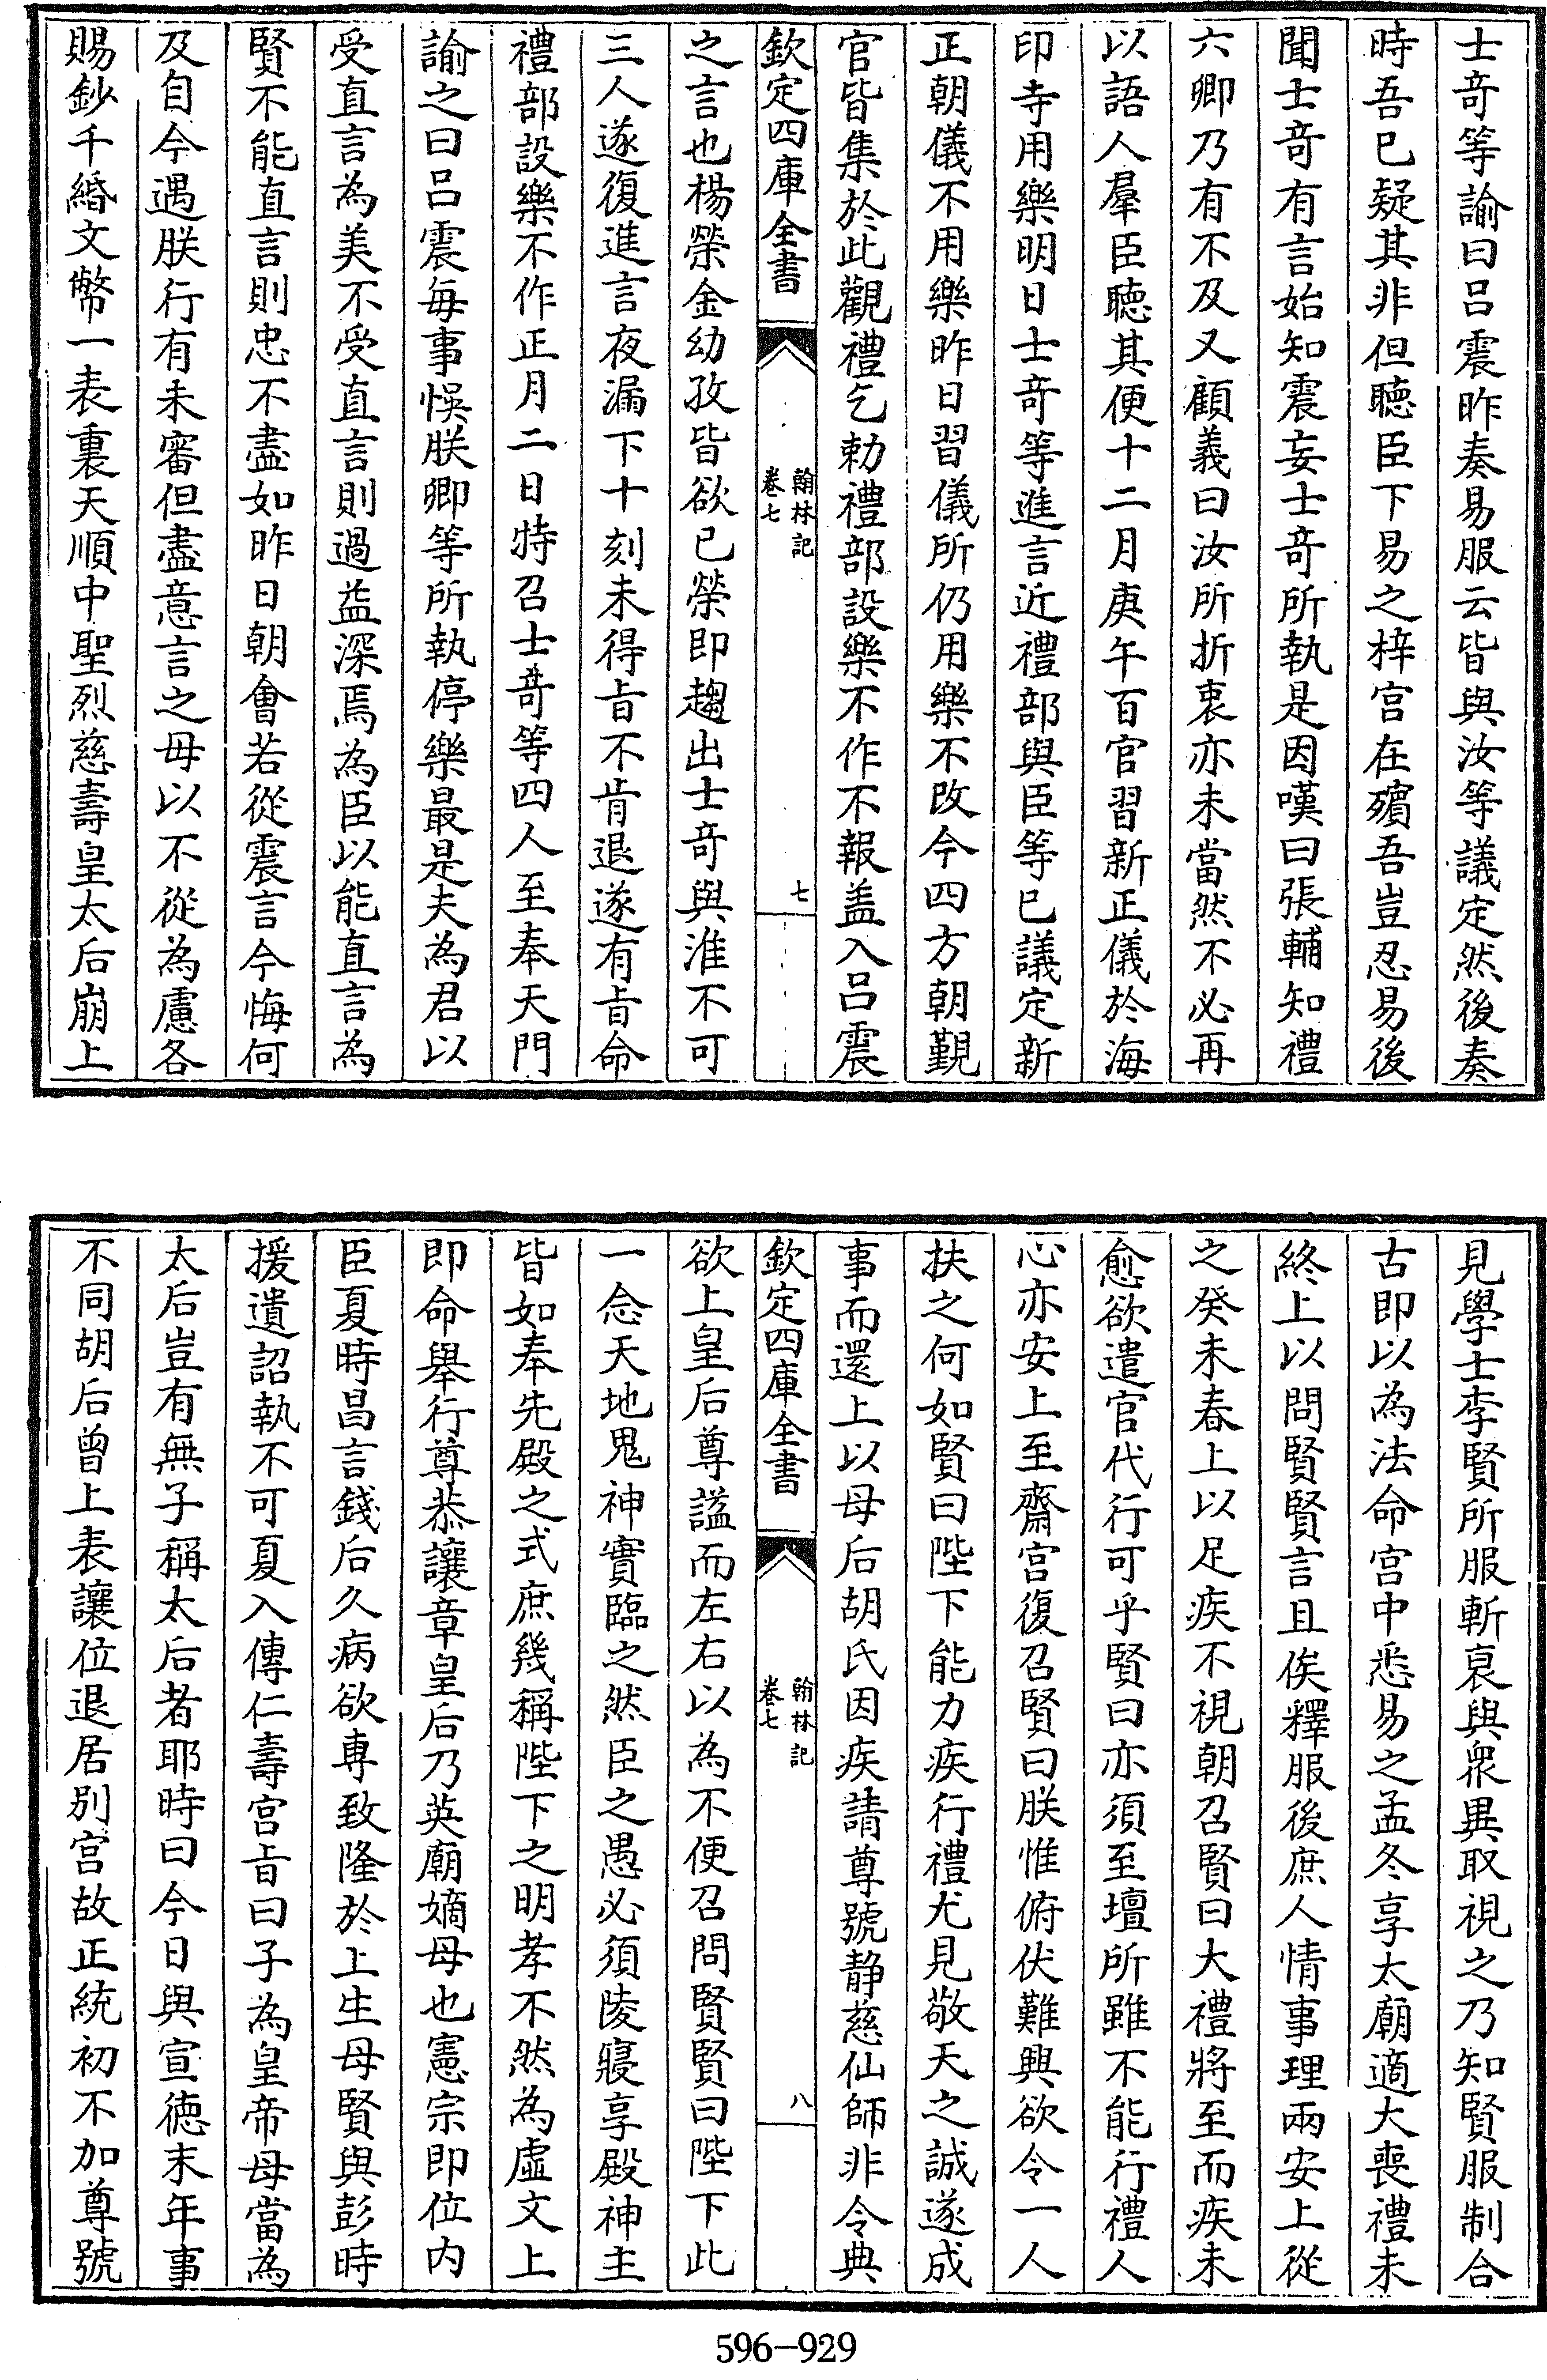 士竒等諭曰呂震昨奏易服云皆與汝等議定然後奏
時吾已疑其非但聽臣下易之梓宫在殯吾豈忍易後
聞士竒有言始知震妄士竒所執是因嘆曰張輔知禮
六卿乃有不及又顧義曰汝所折衷亦未當然不必再
以語人羣臣聽其便十二月庚午百官習新正儀於海
印寺用樂明日士竒等進言近禮部與臣等已議定新
正朝儀不用樂昨日習儀所仍用樂不改今四方朝覲
官皆集於此觀禮乞勅禮部設樂不作不報盖入呂震
欽定四庫全書
翰林記
卷七
七
之言也楊榮金幼孜皆欲已榮即趨出士竒與淮不可
三人遂復進言夜漏下十刻未得㫖不肯退遂有㫖命
禮部設樂不作正月二日特召士竒等四人至奉天門
諭之曰呂震每事悞朕卿等所執停樂最是夫為君以
受直言為美不受直言則過益深焉為臣以能直言為
賢不能直言則忠不盡如昨日朝㑹若從震言今悔何
及自今遇朕行有未審但盡意言之毋以不從為慮各
賜鈔千緡文幣一表裏天順中聖烈慈壽皇太后崩上
見學士李賢所服斬衰與衆異取視之乃知賢服制合
古即以為法命宫中悉易之孟冬享太廟適大喪禮未
終上以問賢賢言且俟釋服後庶人情事理兩安上從
之癸未春上以足疾不視朝召賢曰大禮將至而疾未
愈欲遣官代行可乎賢曰亦須至壇所雖不能行禮人
心亦安上至齋宫復召賢曰朕惟俯伏難興欲令一人
扶之何如賢曰陛下能力疾行禮尤見敬天之誠遂成
事而還上以母后胡氏因疾請尊號静慈仙師非令典
欽定四庫全書
翰林記
卷七
八
欲上皇后尊諡而左右以為不便召問賢賢曰陛下此
一念天地鬼神實臨之然臣之愚必須陵寢享殿神主
皆如奉先殿之式庶幾稱陛下之明孝不然為虛文上
即命舉行尊恭讓章皇后乃英廟嫡母也憲宗即位内
臣夏時昌言錢后久病欲専致隆於上生母賢與彭時
援遺詔執不可夏入傳仁壽宫㫖曰子為皇帝母當為
太后豈有無子稱太后者耶時曰今日與宣徳末年事
不同胡后曾上表讓位退居别宫故正統初不加尊號
596-929